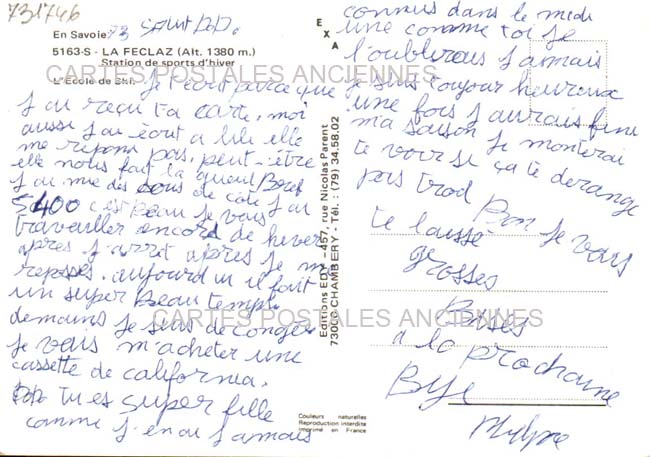 731746
73 SAINT D.D.
En Savoie
5163-S - LA FECLAZ (Alt. 1380 m.)
Station de sports d'hiver
L'Ecole de Ski.
CARTES POSTALES ANCIENNES
Je t'écrit parce que
J'ai reçu ta carte, moi
aussi J'ai écrit a lili elle
me repond pas, peut-être
elle nous fait la queul Bref
J'ai mie des sous de coté J'ai
5400 c'est beau Je vais
travailler encord de hiver
apres J'arrit après Je m
reposses. aujourd'ui il fait
un super Beau temps.
demains Je suis de conges.
Je vais m'acheter une
cassette de california.
tu es super fille
comme J'en ai Jamais
EXA
Editions EDY - 457, rue Nicolas Parent
73000 CHAMBERY - Tél. : (79) 34.58.02
Couleurs naturelles
Reproduction interdite
Imprimé en France
connus dans le midi
une comme toi Je
l'oublirais Jamais
Je suis toujour heureux
une fois J'aurais fini
ma saison Je monterai
te voir si ça te derange
pas trod Bon Je vais
te laissé
grosses
Bises
a la prochaine
Bye
CARTES POSTALES ANCIENNES